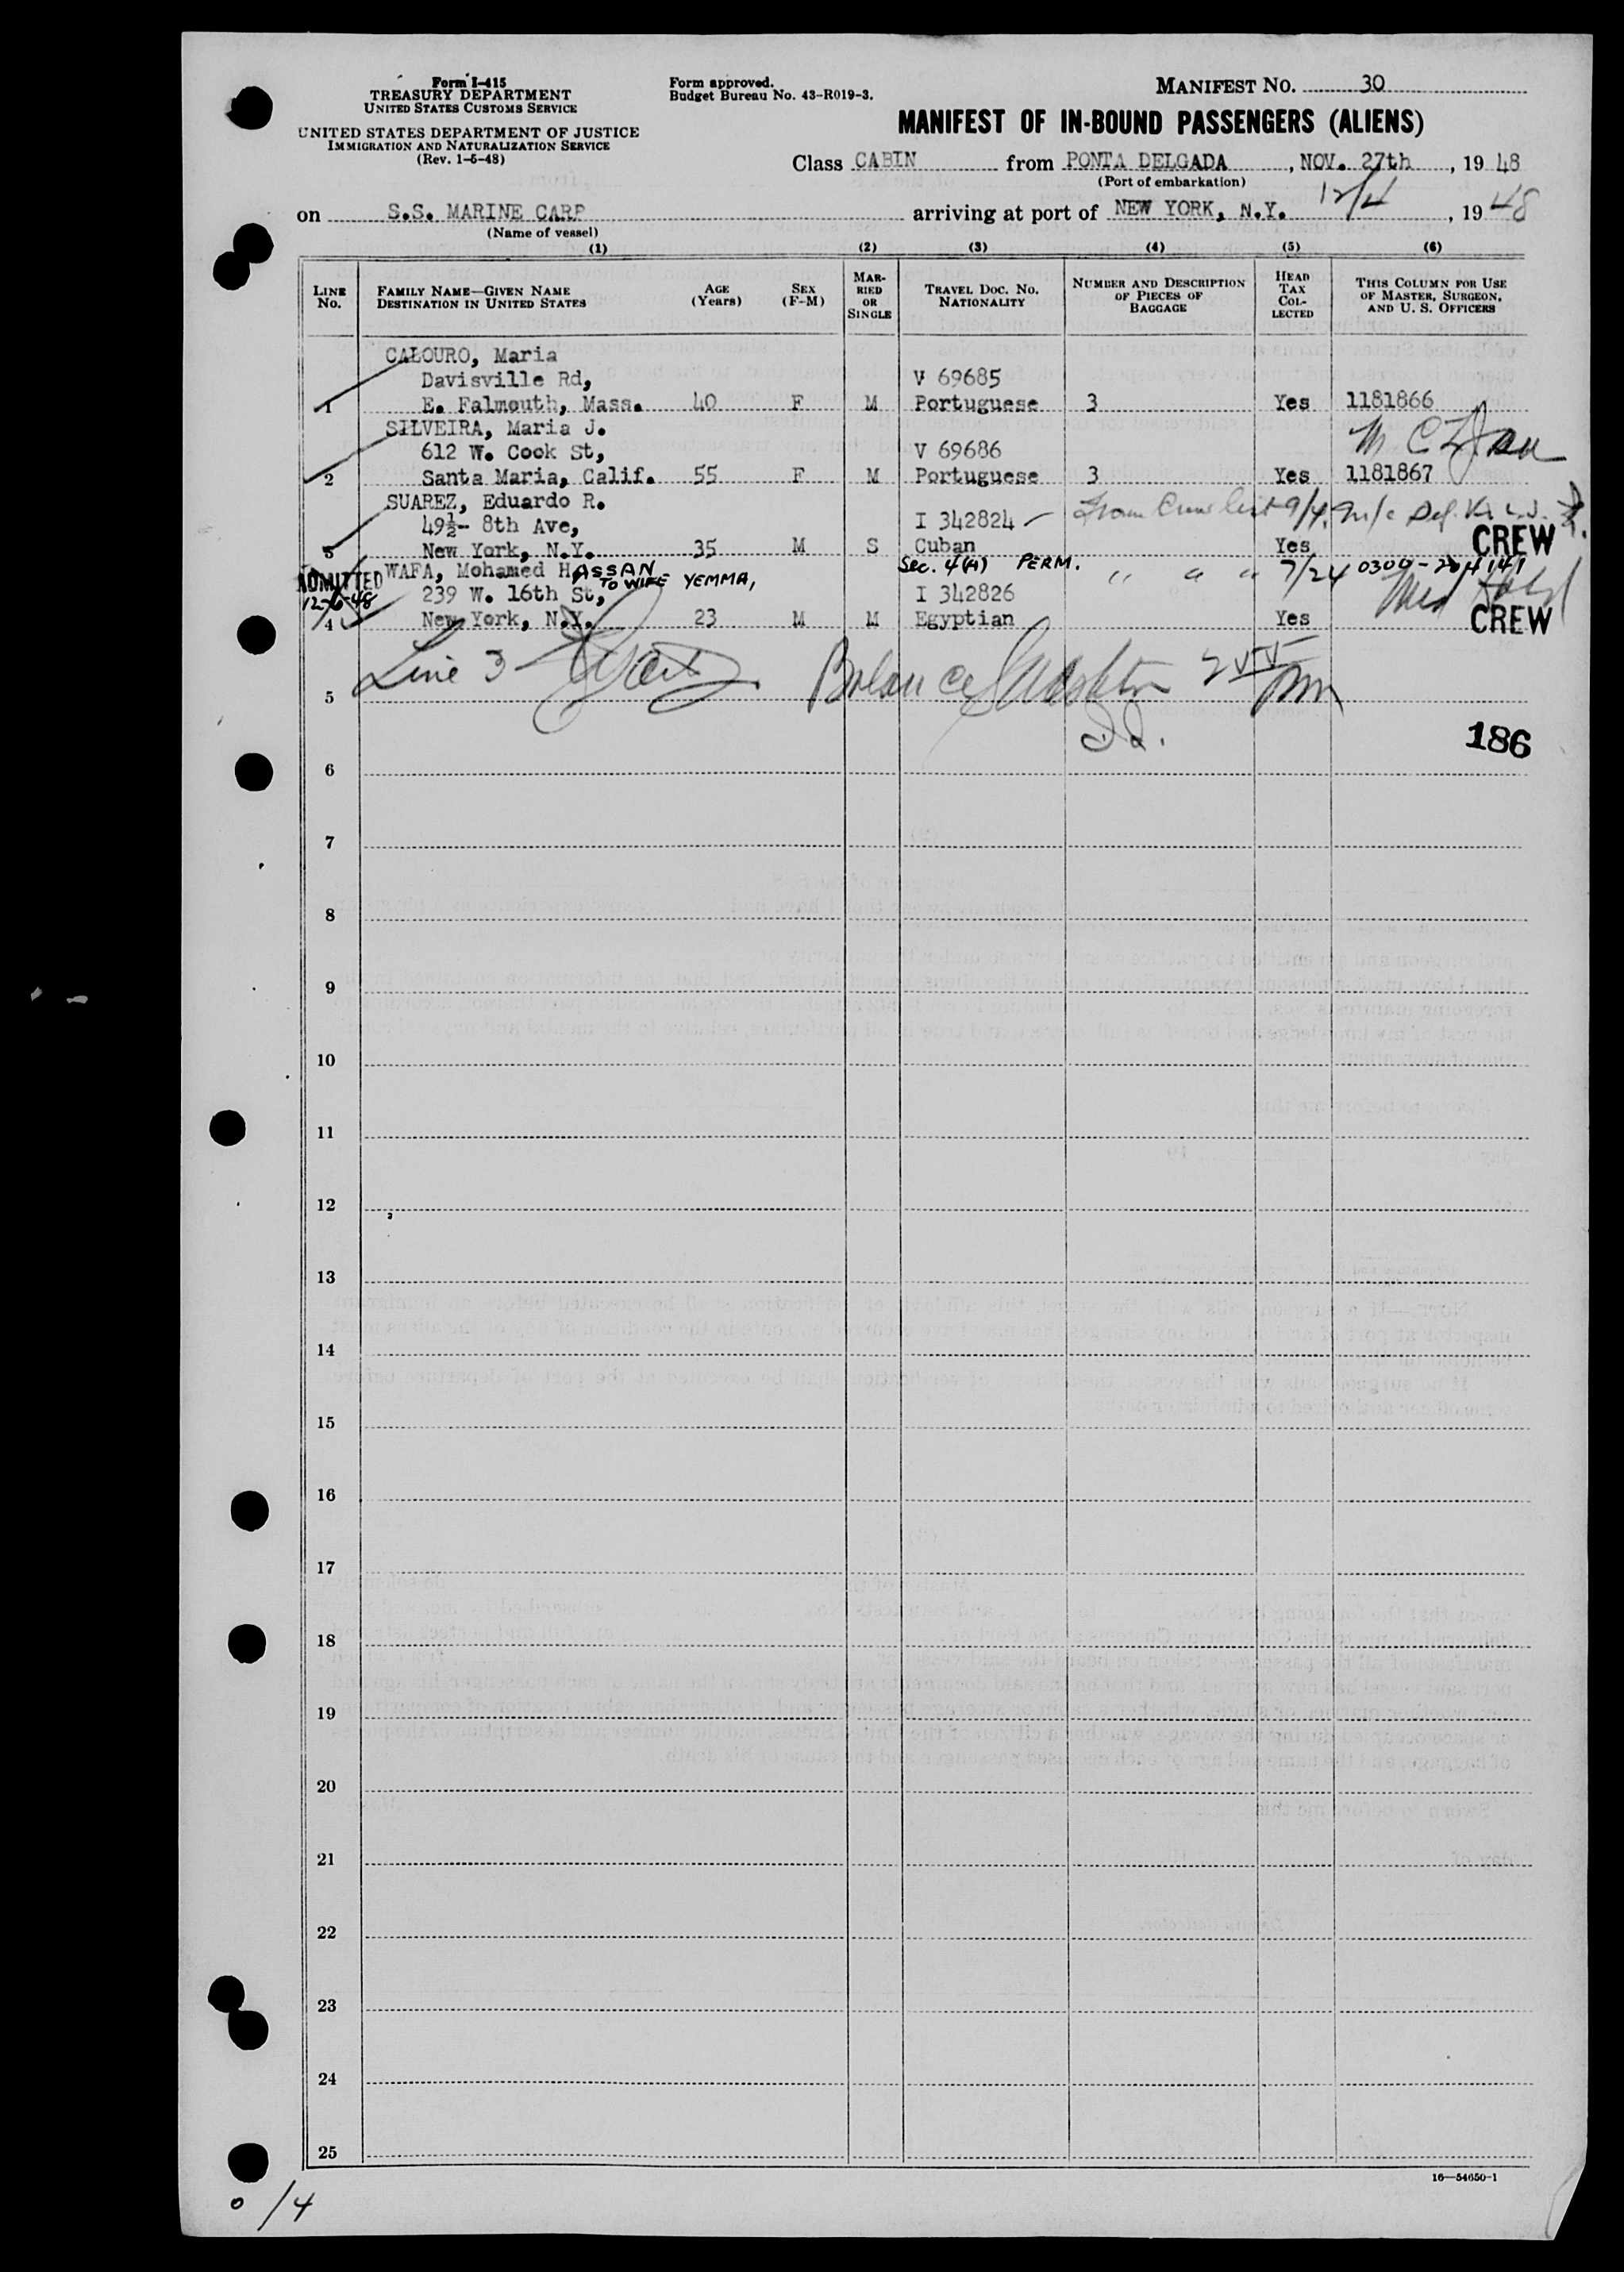 Form I-415
TREASURY DEPARTMENT
UNITED STATES CUSTOMS SERVICE
UNITED STATES DEPARTMENT OF JUSTICE
IMMIGRATION AND NATURALIZATION SERVICE
(Rev. 1-5-48)
Form approved.
Budget Bureau No. 43-R019-3.
MANIFEST NO. 30
MANIFEST OF IN-BOUND PASSENGERS (ALIENS)
Class CABIN from PONTA DELGADA, NOV. 27th, 19 48
(Port of embarkation)
on S.S. MARINE CARP arriving at port of NEW YORK, N.Y. 12/4, 19 48
(Name of vessel)
(1) (2) (3) (4) (5) (6)
LINE No. FAMILY NAME—GIVEN NAME DESTINATION IN UNITED STATES AGE (Years) SEX (F-M) MARRIED OR SINGLE TRAVEL DOC. NO. NATIONALITY NUMBER AND DESCRIPTION OF PIECES OF BAGGAGE HEAD TAX COLLECTED THIS COLUMN FOR USE OF MASTER, SURGEON, AND U. S. OFFICERS
CALOURO, Maria
Davisville Rd, V 69685
1 E. Falmouth, Mass. 40 F M Portuguese 3 Yes 1181866
SILVEIRA, Maria J.
612 W. Cook St, V 69686
2 Santa Maria, Calif. 55 F M Portuguese 3 Yes 1181867
SUAREZ, Eduardo R.
49½- 8th Ave, I 342824 — From Crew list 9/4
3 New York, N.Y. 35 M S Cuban Yes CREW
ADMITTED WAFA, Mohamed HASSAN Sec. 4(A) PERM. " " " 7/24 0300-
12-6-48 239 W. 16th St, TO WIFE YEMMA, I 342826
4 New York, N.Y. 23 M M Egyptian Yes CREW
Line 3
5
186
6
7
8
9
10
11
12
13
14
15
16
17
18
19
20
21
22
23
24
25
16—54650-1
0/4